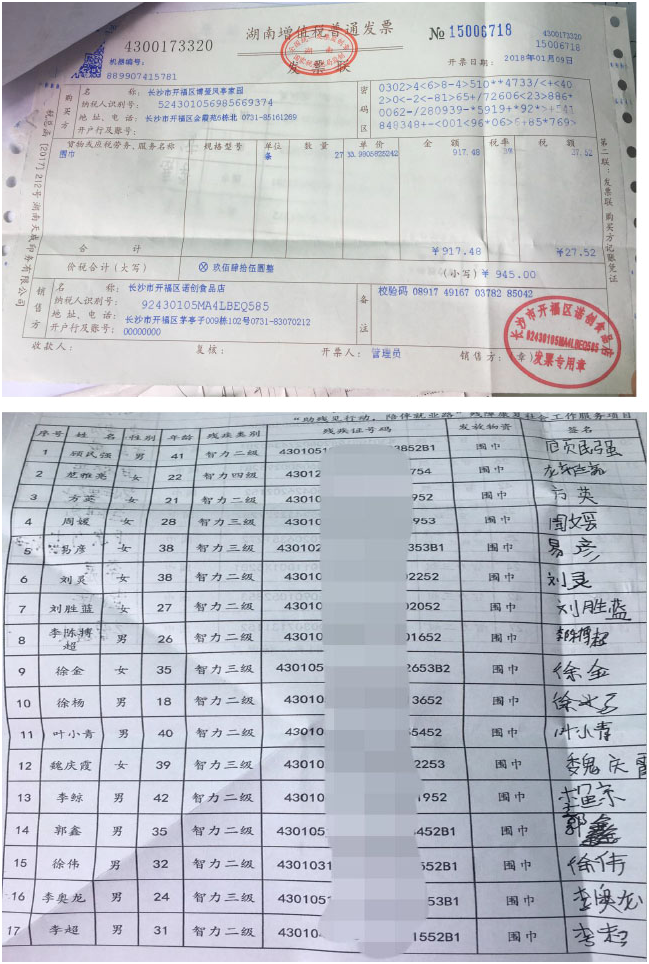 4300173320
湖南增值税普通发票
№ 15006718
4300173320
15006718
机器编号:
889907415781
湖南
发票联
开票日期: 2018年01月09日
购买方
名 称: 长沙市开福区博爱风亭家园
纳税人识别号: 524301056985669374
地 址、电 话: 长沙市开福区金霞苑5栋北 0731-85161269
开户行及账号:
密码区
货物或应税劳务、服务名称 规格型号 单位 数 量 单 价 金 额 税率 税 额
围巾 条 27 917.48 3% 27.52
合 计 ¥917.48 ¥27.52
价税合计(大写) ⊗ 玖佰肆拾伍圆整 (小写) ¥ 945.00
销售方
名 称: 长沙市开福区诺创食品店
纳税人识别号: 92430105MA4LBEQ585
地 址、电 话: 长沙市开福区茅亭子009栋102号0731-83070212
开户行及账号: 00000000
备注
校验码 08917 49167 03782 85042
收款人: 复核: 开票人: 管理员 销售方: (章)
长沙市开福区诺创食品店
92430105MA4LBEQ585
发票专用章
第二联: 发票联 购买方记账凭证
序号 姓 名 性别 年龄 残疾类别 残疾证号码 发放物资 签名
1 顾民强 男 41 智力二级 4301051 3852B1 围巾 顾民强
2 楚雅亮 女 22 智力四级 43012 754 围巾
3 方英 女 21 智力二级 43010 952 围巾 方英
4 周媛 女 28 智力三级 43010 953 围巾 周媛
5 易彦 女 38 智力三级 430102 353B1 围巾 易彦
6 刘灵 女 38 智力三级 43010 02252 围巾 刘灵
7 刘胜蓝 女 27 智力二级 43010 02052 围巾 刘胜蓝
8 李陈搏超 男 26 智力二级 43010 01652 围巾 李陈搏超
9 徐金 女 35 智力三级 430105 2653B2 围巾 徐金
10 徐杨 男 18 智力二级 43010 3652 围巾
11 叶小青 男 40 智力二级 43010 5452 围巾 叶小青
12 魏庆霞 女 39 智力三级 43010 2253 围巾 魏庆霞
13 李鲸 男 42 智力二级 43010 1952 围巾
14 郭鑫 男 35 智力二级 430105 4452B1 围巾 郭鑫
15 徐伟 男 32 智力二级 4301031 552B1 围巾 徐伟
16 李奥龙 男 24 智力三级 430105 53B1 围巾 李奥龙
17 李超 男 31 智力二级 43010 1552B1 围巾 李超